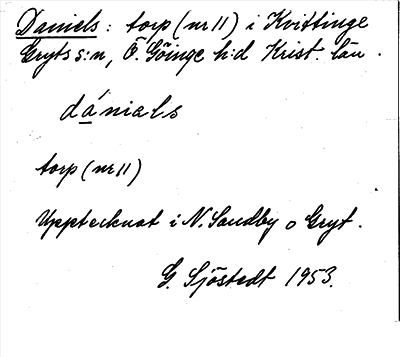 Daniels: torp (nr 11) i Kvittinge
Gryts s:n, Ö. Göinge h:d Krist. län.
dánials
torp (nr 11)
Upptecknat i N. Sandby o Gryt.
G. Sjöstedt 1953.